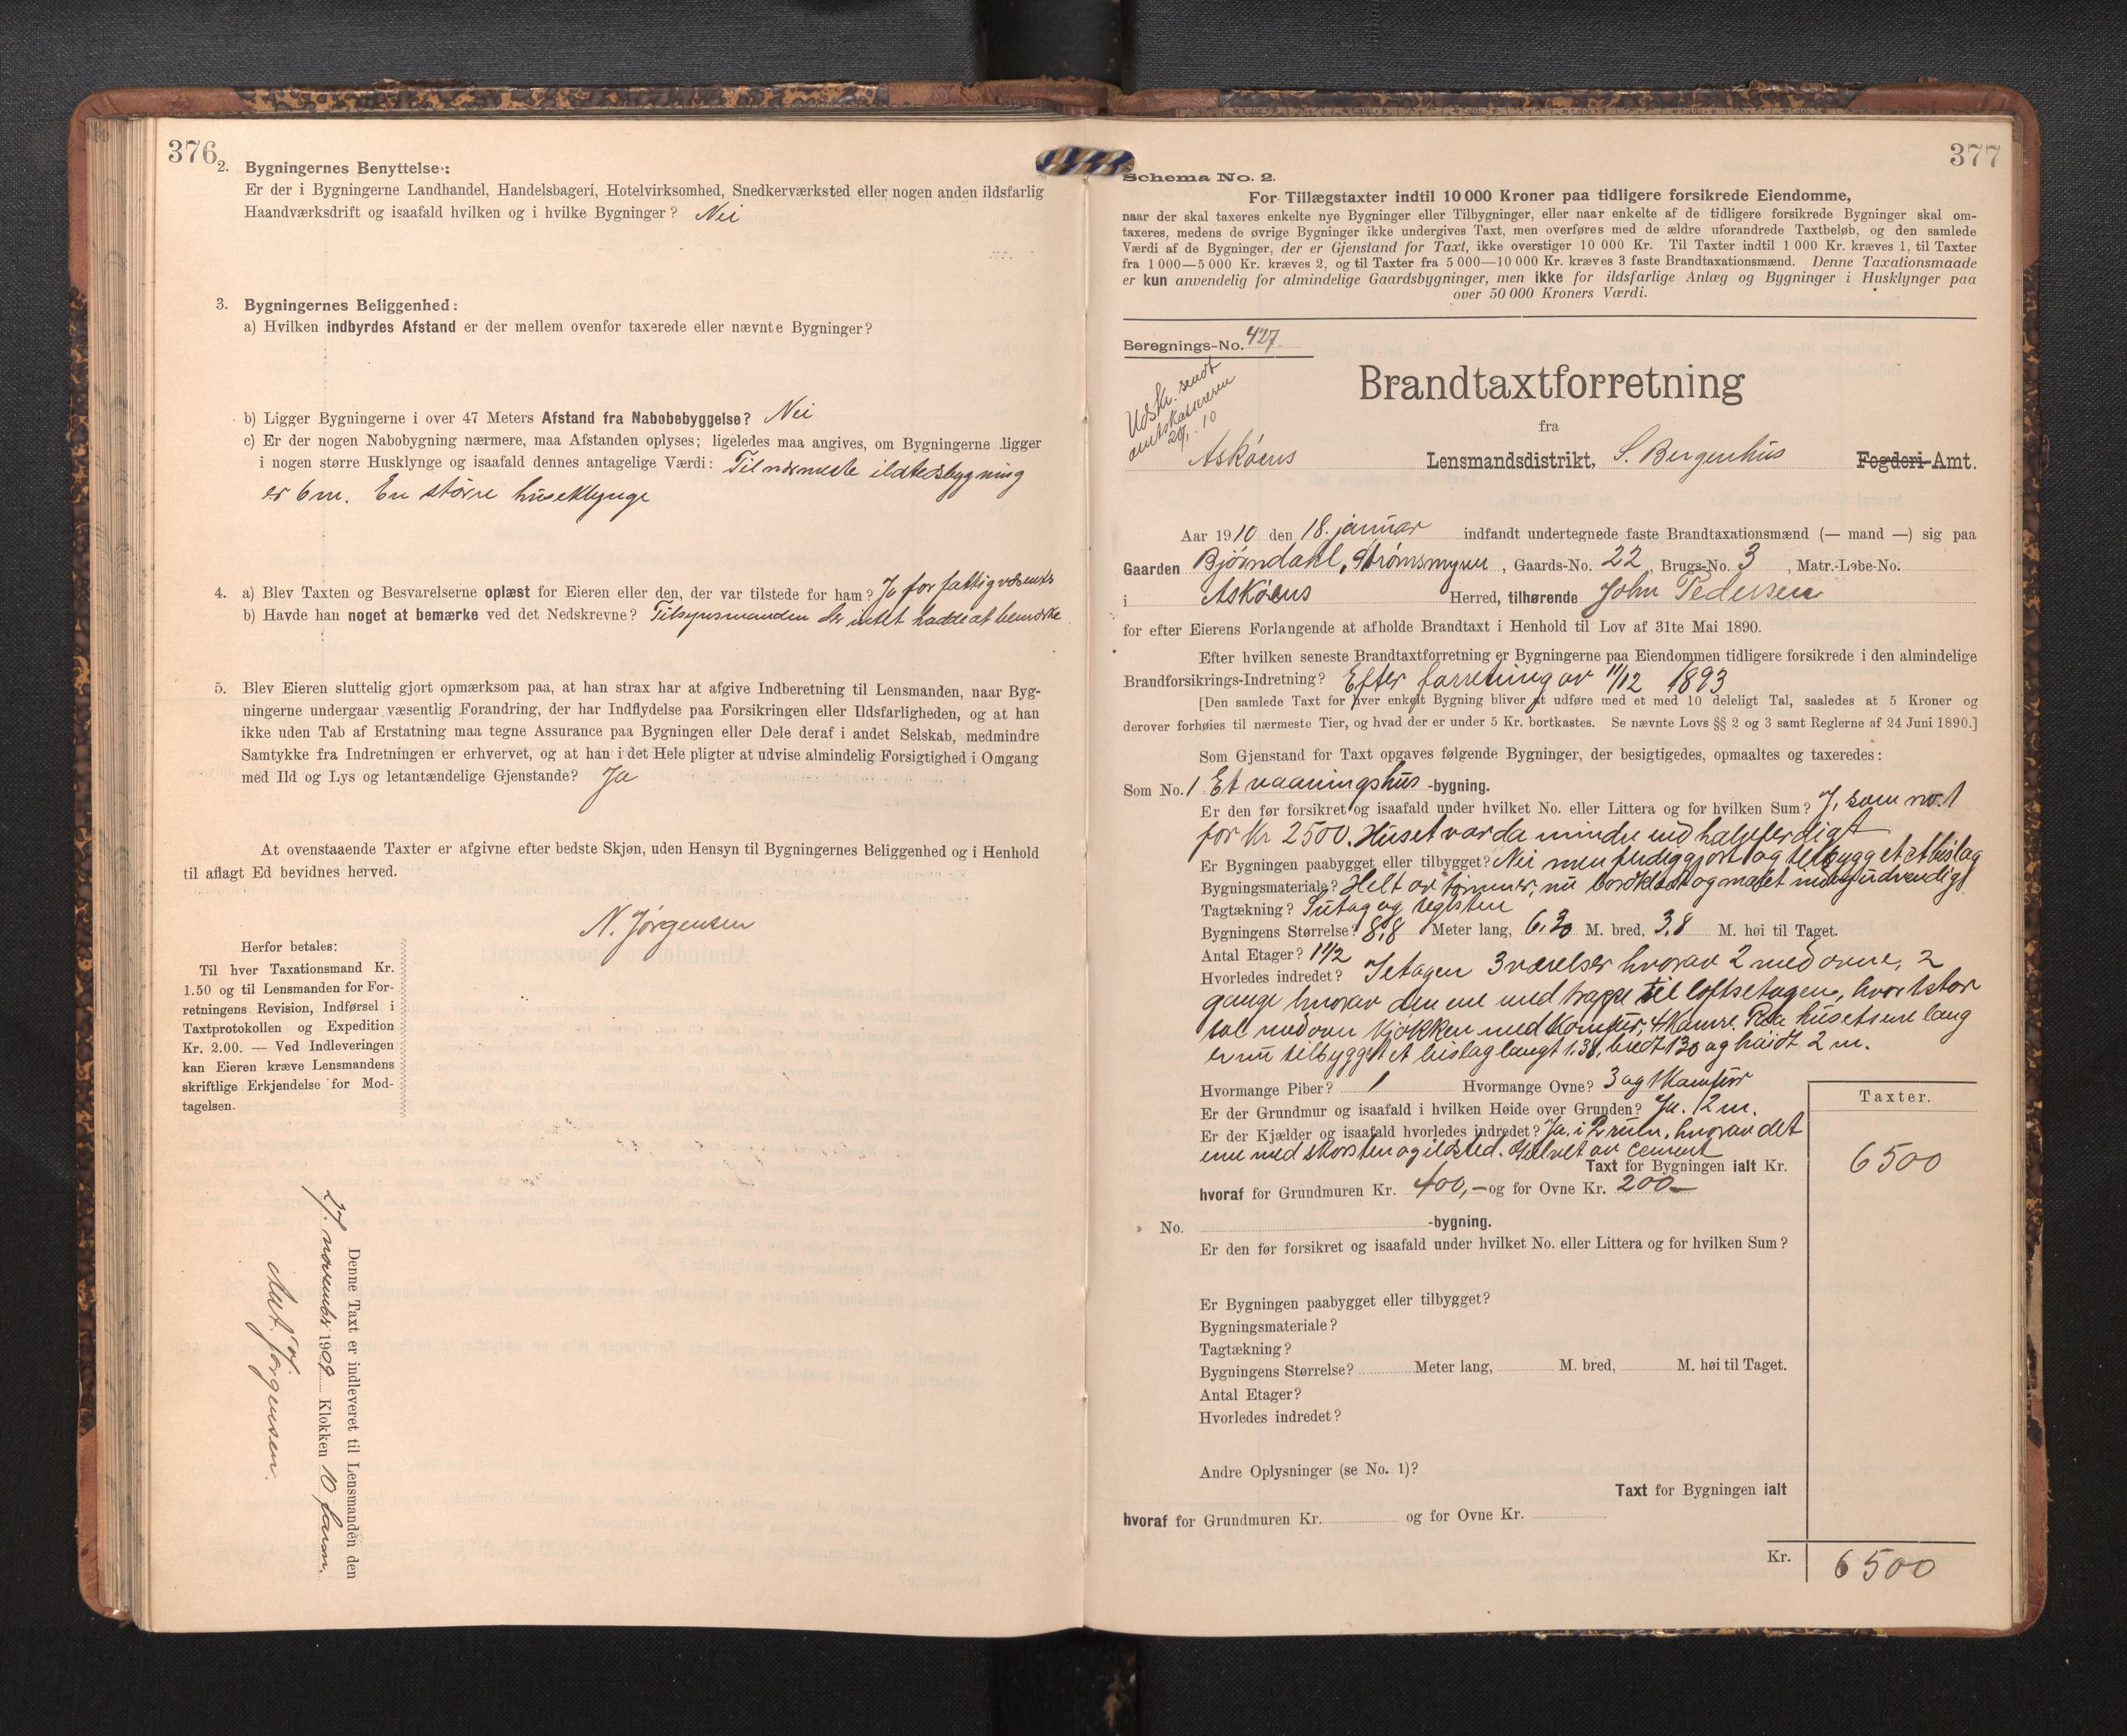 376
2. Bygningernes Benyttelse:
Er der i Bygningerne Landhandel, Handelsbageri, Hotelvirksomhed, Snedkerværksted eller nogen anden ildsfarlig
Haandværksdrift og isaafald hvilken og i hvilke Bygninger? Nei
3. Bygningernes Beliggenhed:
a) Hvilken indbyrdes Afstand er der mellem ovenfor taxerede eller nævnte Bygninger?
b) Ligger Bygningerne i over 47 Meters Afstand fra Nabobebyggelse? Nei
c) Er der nogen Nabobygning nærmere, maa Afstanden oplyses; ligeledes maa angives, om Bygningerne ligger
i nogen større Husklynge og isaafald dennes antagelige Værdi: Til nærmeste ildstedsbygning
er 6 m. En større huseklynge
4. a) Blev Taxten og Besvarelserne oplæst for Eieren eller den, der var tilstede for ham? Ja for fattigvæsenets
b) Havde han noget at bemærke ved det Nedskrevne? Tilsynsmanden der intet hadde at bemærke
5. Blev Eieren sluttelig gjort opmærksom paa, at han strax har at afgive Indberetning til Lensmanden, naar Byg-
ningerne undergaar væsentlig Forandring, der har Indflydelse paa Forsikringen eller Ildsfarligheden, og at han
ikke uden Tab af Erstatning maa tegne Assurance paa Bygningen eller Dele deraf i andet Selskab, medmindre
Samtykke fra Indretningen er erhvervet, og at han i det Hele pligter at udvise almindelig Forsigtighed i Omgang
med Ild og Lys og letantændelige Gjenstande? Ja
At ovenstaaende Taxter er afgivne efter bedste Skjøn, uden Hensyn til Bygningernes Beliggenhed og i Henhold
til aflagt Ed bevidnes herved.
N. Jørgensen
Herfor betales:
Til hver Taxationsmand Kr.
1.50 og til Lensmanden for For-
retningens Revision, Indførsel i
Taxtprotokollen og Expedition
Kr. 2.00. — Ved Indleveringen
kan Eieren kræve Lensmandens
skriftlige Erkjendelse for Mod-
tagelsen.
Denne Taxt er indleveret til Lensmanden den
27. november 1909 Klokken 10 form.
Jørgensen.
377
Schema No. 2.
For Tillægstaxter indtil 10 000 Kroner paa tidligere forsikrede Eiendomme,
naar der skal taxeres enkelte nye Bygninger eller Tilbygninger, eller naar enkelte af de tidligere forsikrede Bygninger skal om-
taxeres, medens de øvrige Bygninger ikke undergives Taxt, men overføres med de ældre uforandrede Taxtbeløb, og den samlede
Værdi af de Bygninger, der er Gjenstand for Taxt, ikke overstiger 10 000 Kr. Til Taxter indtil 1 000 Kr. kræves 1, til Taxter
fra 1 000—5 000 Kr. kræves 2, og til Taxter fra 5 000—10 000 Kr. kræves 3 faste Brandtaxationsmænd. Denne Taxationsmaade
er kun anvendelig for almindelige Gaardsbygninger, men ikke for ildsfarlige Anlæg og Bygninger i Husklynger paa
over 50 000 Kroners Værdi.
Beregnings-No. 427.
Udskr. sendt
amtskassereren
10
Brandtaxtforretning
fra
Askøens Lensmandsdistrikt, S. Bergenhus Fogderi-Amt.
Aar 1910 den 18. januar indfandt undertegnede faste Brandtaxationsmænd (— mand —) sig paa
Gaarden Bjørndahl, Strømsmyren, Gaards-No. 22, Brugs-No. 3, Matr.-Løbe-No.
i Askøens Herred, tilhørende John Pedersen
for efter Eierens Forlangende at afholde Brandtaxt i Henhold til Lov af 31te Mai 1890.
Efter hvilken seneste Brandtaxtforretning er Bygningerne paa Eiendommen tidligere forsikrede i den almindelige
Brandforsikrings-Indretning? Efter forretning av 11/12 1893
[Den samlede Taxt for hver enkelt Bygning bliver at udføre med et med 10 deleligt Tal, saaledes at 5 Kroner og
derover forhøies til nærmeste Tier, og hvad der er under 5 Kr. bortkastes. Se nævnte Lovs §§ 2 og 3 samt Reglerne af 24 Juni 1890.]
Som Gjenstand for Taxt opgaves følgende Bygninger, der besigtigedes, opmaaltes og taxeredes:
Som No. 1 Et vaaningshus -bygning.
Er den før forsikret og isaafald under hvilket No. eller Littera og for hvilken Sum? J, som no. 1
for Kr 2500. Huset var da mindre end halvferdigt
Er Bygningen paabygget eller tilbygget? Nei men ferdiggjort og tilbygget et bislag
Bygningsmateriale? Helt av tømmer, nu bordklædt og malet ind og udvendigt
Tagtækning? Sutag og teglsten
Bygningens Størrelse? 8,8 Meter lang, 6,30 M. bred, 3,8 M. høi til Taget.
Antal Etager? 1 1/2
Hvorledes indredet? I etagen 3 værelser hvorav 2 med ovne, 2
gange hvorav den ene med trappe til loftsetagen, hvor 1 stor
sal med ovn kjøkken med komfur, 4 kamre. Paa husets ene lang
er nu tilbygget et bislag langt 1.38, bredt 1.30 og høidt 2 m.
Hvormange Piber? 1 Hvormange Ovne? 3 og 1 Komfur
Er der Grundmur og isaafald i hvilken Høide over Grunden? Ja. 1.2 m.
Er der Kjælder og isaafald hvorledes indredet? Ja. i 2 rum, hvorav det
ene med skorsten og ildsted. Gulvet av cement
Taxter.
Taxt for Bygningen ialt Kr. 6500
hvoraf for Grundmuren Kr. 400,— og for Ovne Kr. 200—
» No. -bygning.
Er den før forsikret og isaafald under hvilket No. eller Littera og for hvilken Sum?
Er Bygningen paabygget eller tilbygget?
Bygningsmateriale?
Tagtækning?
Bygningens Størrelse? Meter lang, M. bred, M. høi til Taget.
Antal Etager?
Hvorledes indredet?
Andre Oplysninger (se No. 1)?
Taxt for Bygningen ialt
hvoraf for Grundmuren Kr. og for Ovne Kr.
Kr. 6500